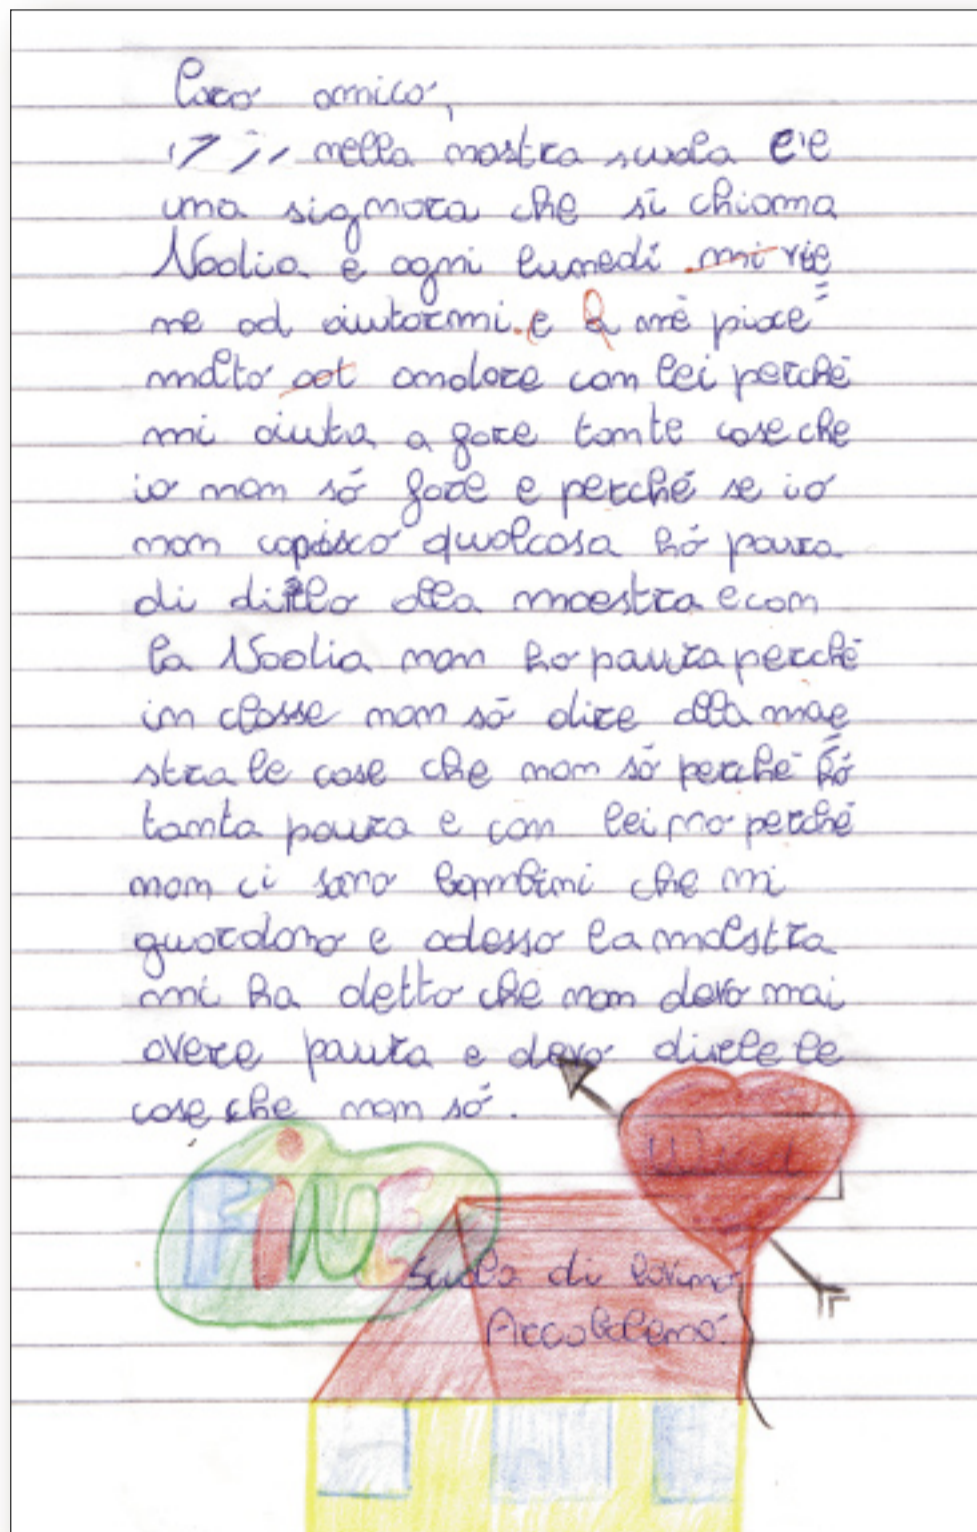 Caro amico,
nella nostra scuola c'è
una signora che si chiama
Nadia e ogni lunedì mi vie
ne ad aiutarmi. e A me piace
molto andare con lei perché
mi aiuta a fare tante cose che
io non só fare e perché se io
non capisco qualcosa hó paura
di dirlo alla maestra e con
la Nadia non ho paura perché
in classe non só dire alla mae
stra le cose che non só perché hó
tanta paura e con lei no perché
non ci sono bambini che mi
guardono e adesso la maestra
mi ha detto che non devo mai
avere paura e devo dirle le
cose che non só.
FiNE
scuola di